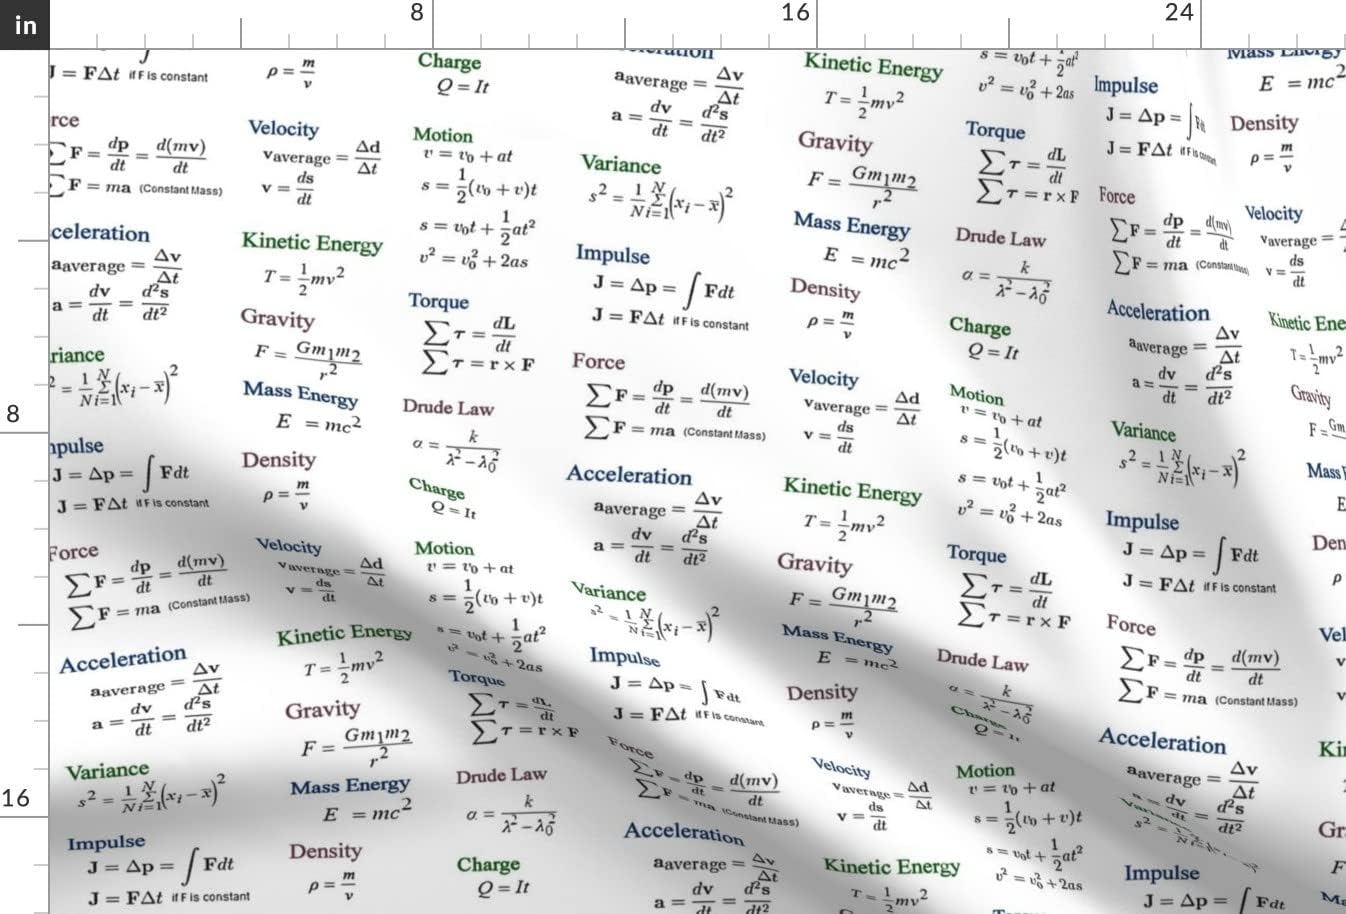 in
8
16
24
8
16
J = FΔt if F is constant
rce
∑F = dp/dt = d(mv)/dt
∑F = ma (Constant Mass)
celeration
aaverage = Δv/Δt
a = dv/dt = d²s/dt²
riance
² = 1/N N∑i=1 (xi − x̄)²
npulse
J = Δp = ∫Fdt
J = FΔt if F is constant
Force
∑F = dp/dt = d(mv)/dt
∑F = ma (Constant Mass)
Acceleration
aaverage = Δv/Δt
a = dv/dt = d²s/dt²
Variance
s² = 1/N N∑i=1 (xi − x̄)²
Impulse
J = Δp = ∫Fdt
J = FΔt if F is constant
ρ = m/v
Velocity
vaverage = Δd/Δt
v = ds/dt
Kinetic Energy
T = 1/2 mv²
Gravity
F = Gm1m2/r²
Mass Energy
E = mc²
Density
ρ = m/v
Velocity
vaverage = Δd/Δt
v = ds/dt
Kinetic Energy
T = 1/2 mv²
Gravity
F = Gm1m2/r²
Mass Energy
E = mc²
Density
ρ = m/v
Charge
Q = It
Motion
v = v0 + at
s = 1/2 (v0 + v)t
s = v0t + 1/2 at²
v² = v0² + 2as
Torque
∑τ = dL/dt
∑τ = r × F
Drude Law
α = k/λ² − λ0²
Charge
Q = It
Motion
v = v0 + at
s = 1/2 (v0 + v)t
s = v0t + 1/2 at²
v² = v0² + 2as
Torque
∑τ = dL/dt
∑τ = r × F
Drude Law
α = k/λ² − λ0²
Charge
Q = It
aaverage = Δv/Δt
a = dv/dt = d²s/dt²
Variance
s² = 1/N N∑i=1 (xi − x̄)²
Impulse
J = Δp = ∫Fdt
J = FΔt if F is constant
Force
∑F = dp/dt = d(mv)/dt
∑F = ma (Constant Mass)
Acceleration
aaverage = Δv/Δt
a = dv/dt = d²s/dt²
Variance
s² = 1/N N∑i=1 (xi − x̄)²
Impulse
J = Δp = ∫Fdt
J = FΔt if F is constant
Force
∑F = dp/dt = d(mv)/dt
∑F = ma (Constant Mass)
Acceleration
aaverage = Δv/Δt
a = dv/dt = d²s/dt²
Kinetic Energy
T = 1/2 mv²
Gravity
F = Gm1m2/r²
Mass Energy
E = mc²
Density
ρ = m/v
Velocity
vaverage = Δd/Δt
v = ds/dt
Kinetic Energy
T = 1/2 mv²
Gravity
F = Gm1m2/r²
Mass Energy
E = mc²
Density
ρ = m/v
Velocity
vaverage = Δd/Δt
v = ds/dt
Kinetic Energy
T = 1/2 mv²
s = v0t + 1/2 at²
v² = v0² + 2as
Torque
∑τ = dL/dt
∑τ = r × F
Drude Law
α = k/λ² − λ0²
Charge
Q = It
Motion
v = v0 + at
s = 1/2 (v0 + v)t
s = v0t + 1/2 at²
v² = v0² + 2as
Torque
∑τ = dL/dt
∑τ = r × F
Drude Law
α = k/λ² − λ0²
Charge
Q = It
Motion
v = v0 + at
s = 1/2 (v0 + v)t
s = v0t + 1/2 at²
v² = v0² + 2as
Impulse
J = Δp = ∫Fdt
J = FΔt if F is constant
Force
∑F = dp/dt = d(mv)/dt
∑F = ma (Constant Mass)
Acceleration
aaverage = Δv/Δt
a = dv/dt = d²s/dt²
Variance
s² = 1/N N∑i=1 (xi − x̄)²
Impulse
J = Δp = ∫Fdt
J = FΔt if F is constant
Force
∑F = dp/dt = d(mv)/dt
∑F = ma (Constant Mass)
Acceleration
aaverage = Δv/Δt
a = dv/dt = d²s/dt²
Impulse
J = Δp = ∫Fdt
Mass Energy
E = mc²
Density
ρ = m/v
Velocity
vaverage =
v = ds/dt
Kinetic Ene
T = 1/2 mv²
Gravity
F = Gm
Mass
E
Den
ρ
Vel
v
v
Kin
Gr
F